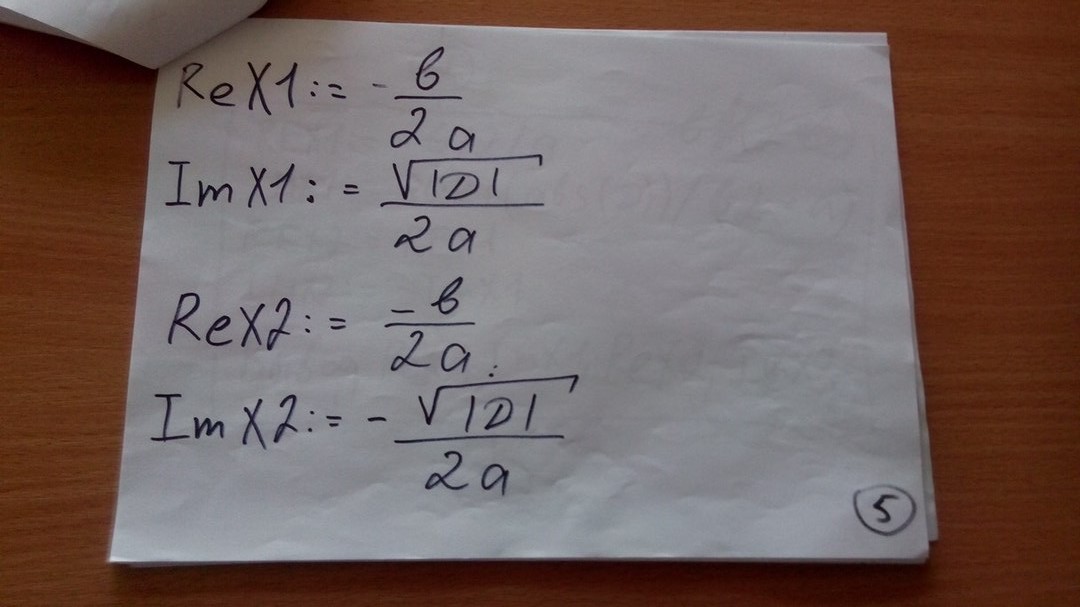 ReX1:= -b/2a
ImX1:= √|D|/2a
ReX2:= -b/2a
ImX2:= -√|D|/2a
5